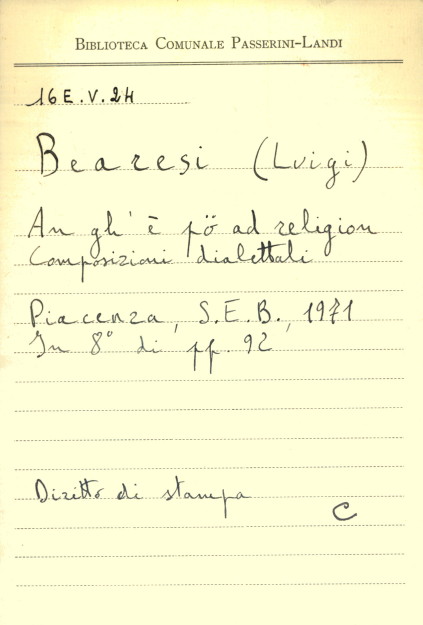 BIBLIOTECA COMUNALE PASSERINI-LANDI
16 E. V. 24
Bearesi (Luigi)
An gh' è pö ad religion
Composizioni dialettali
Piacenza, S.E.B., 1971
In 8° di pp. 92
Diritto di stampa
C